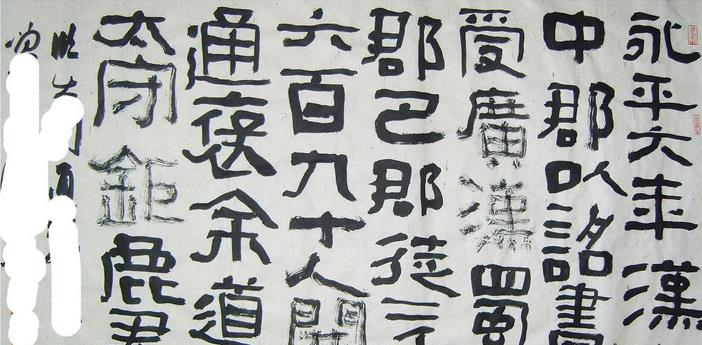 永平六年漢
中郡以詔書
受廣漢蜀
郡巴郡徒二千
六百九十人開
通褒余道
太守鉅鹿君
臨